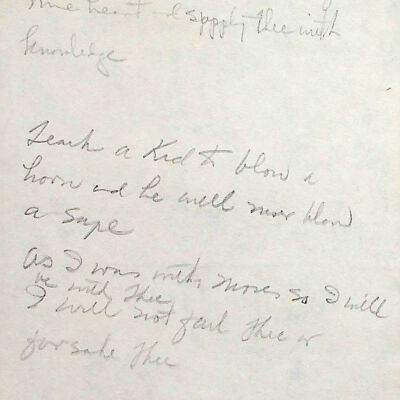 thine heart and supply thee with
knowledge
Teach a Kid to blow a
horn and he will never blow
a safe
as I was with moses so I will
be with thee
I will not fail thee or
forsake thee